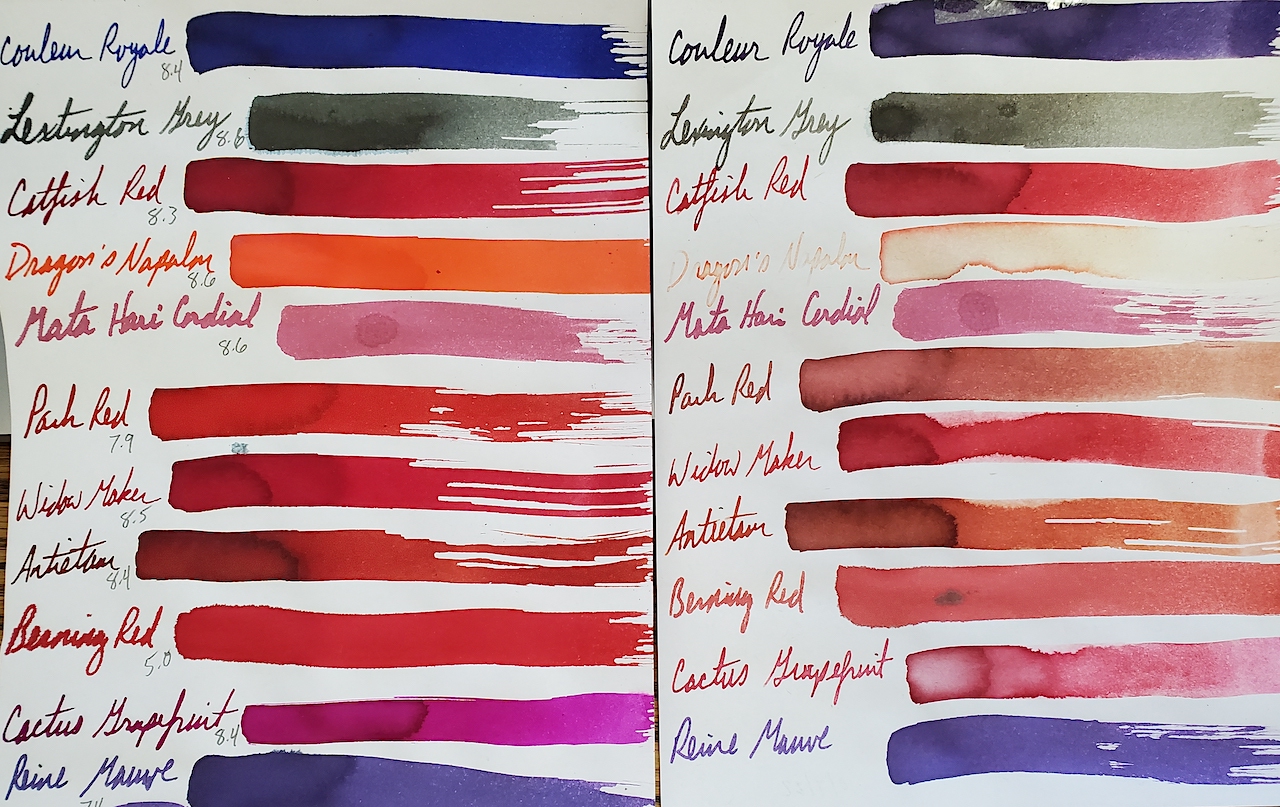 Couleur Royale
8.4
Lexington Grey
8.6
Catfish Red
8.3
Dragon's Napalm
8.6
Mata Hari Cordial
8.6
Park Red
7.9
Widow Maker
8.5
Antietam
8.4
Berning Red
5.0
Cactus Grapefruit
8.4
Reine Mauve
7.4
Couleur Royale
Lexington Grey
Catfish Red
Dragon's Napalm
Mata Hari Cordial
Park Red
Widow Maker
Antietam
Berning Red
Cactus Grapefruit
Reine Mauve